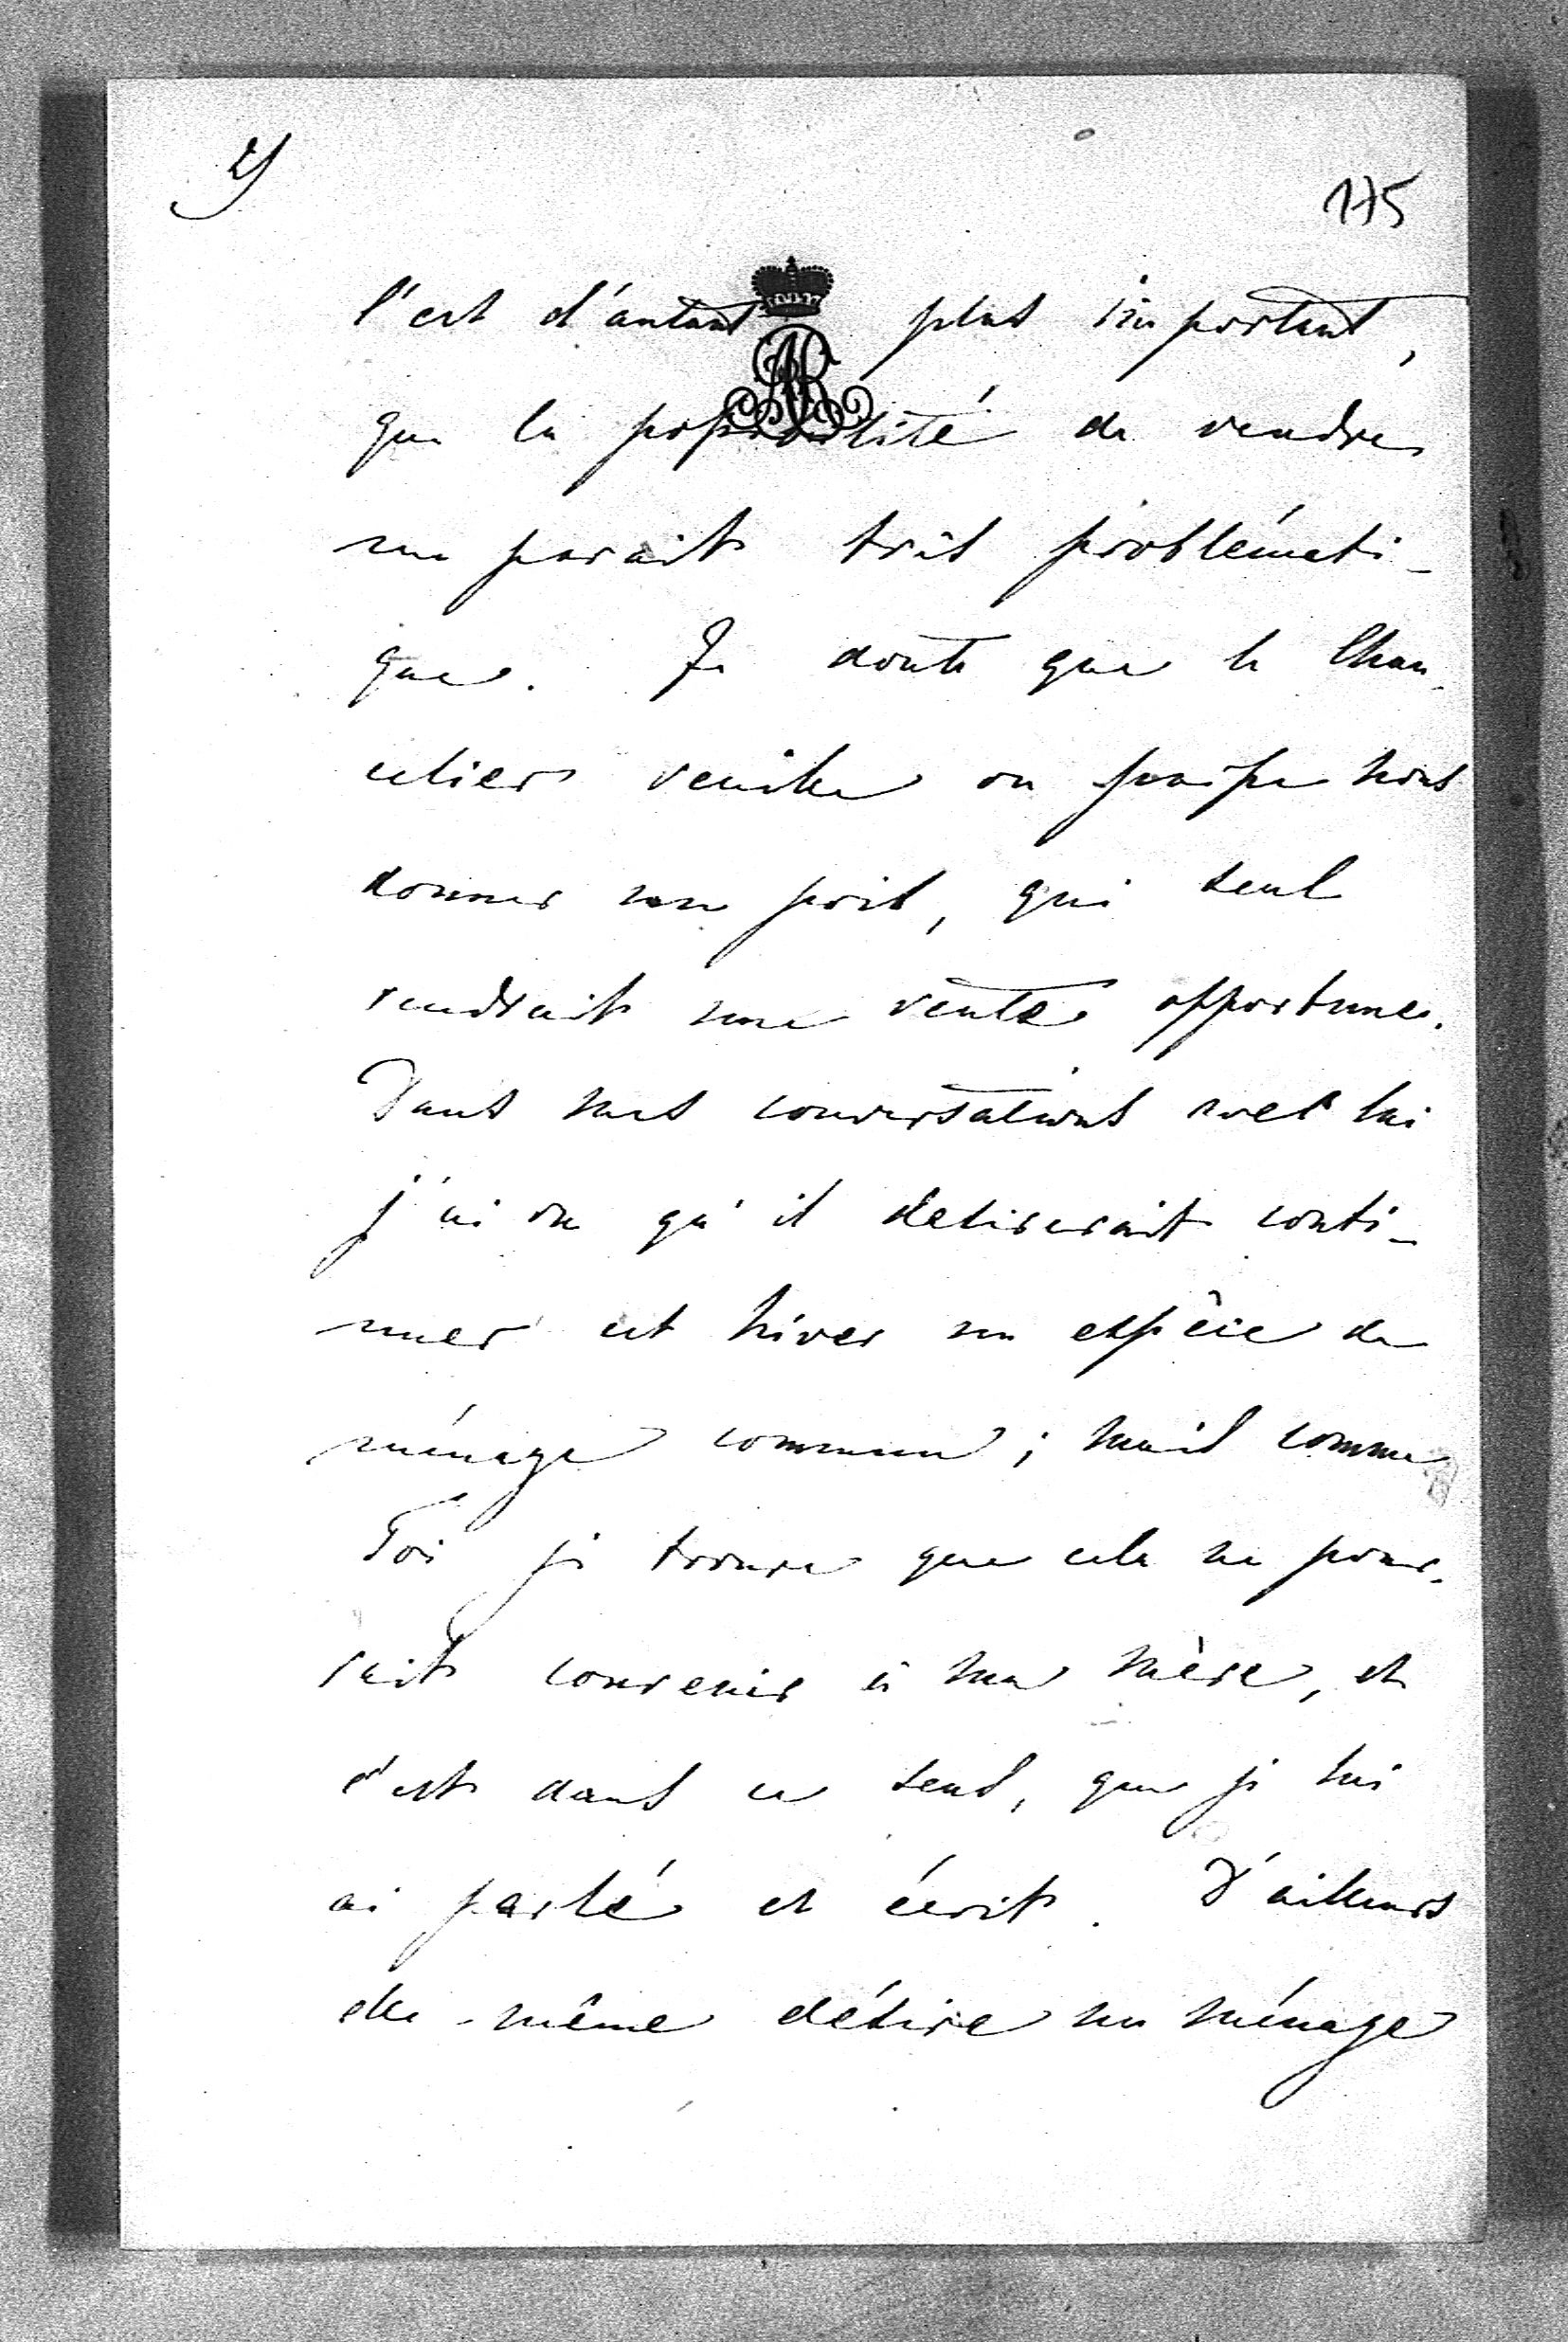 2)
175
C'est d'autant plus important,
que la possibilité de vendre
me parait très problémati-
que. Je doute que le Chan-
celier veuille ou puisse nous
donner un prix, qui seul
rendrait une vente opportune.
Dans mes conversations avec lui
j'ai vu qu'il desirerait conti-
nuer cet hiver un espèce de
ménage commun; mais comme
Toi je trouve que cela ne pour-
rait convenir à ma mère, et
c'est dans ce sens, que je lui
ai parlé et écrit. D'ailleurs
elle-même désire un ménage